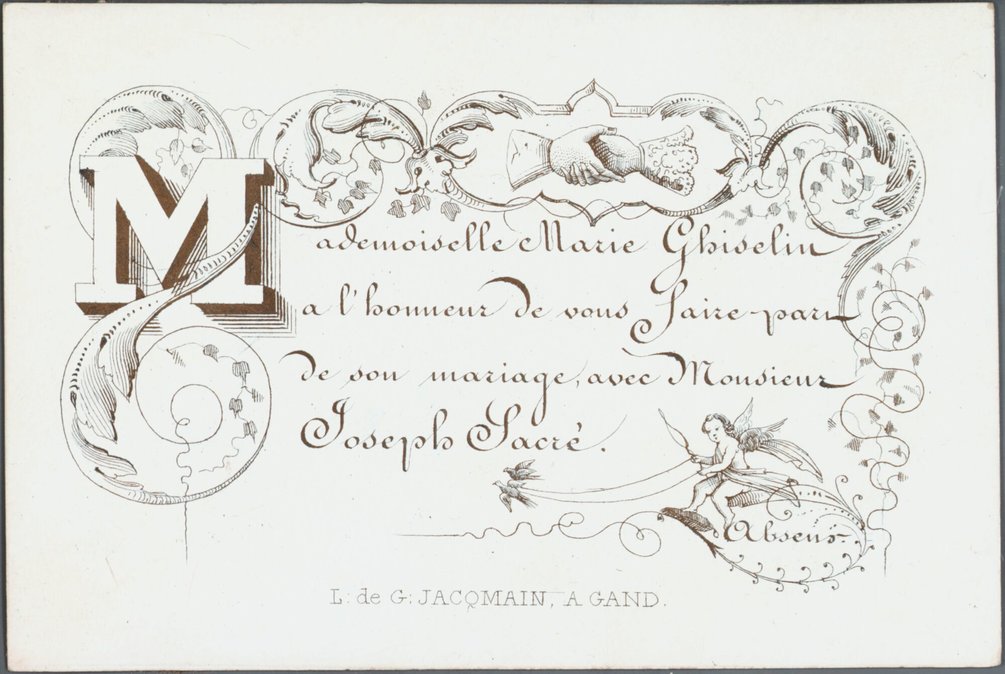 Mademoiselle Marie Ghiselin
a l'honneur de vous Faire part
de son mariage, avec Monsieur
Joseph Sacré.
Absens.
L: de G: JACQMAIN, A GAND.